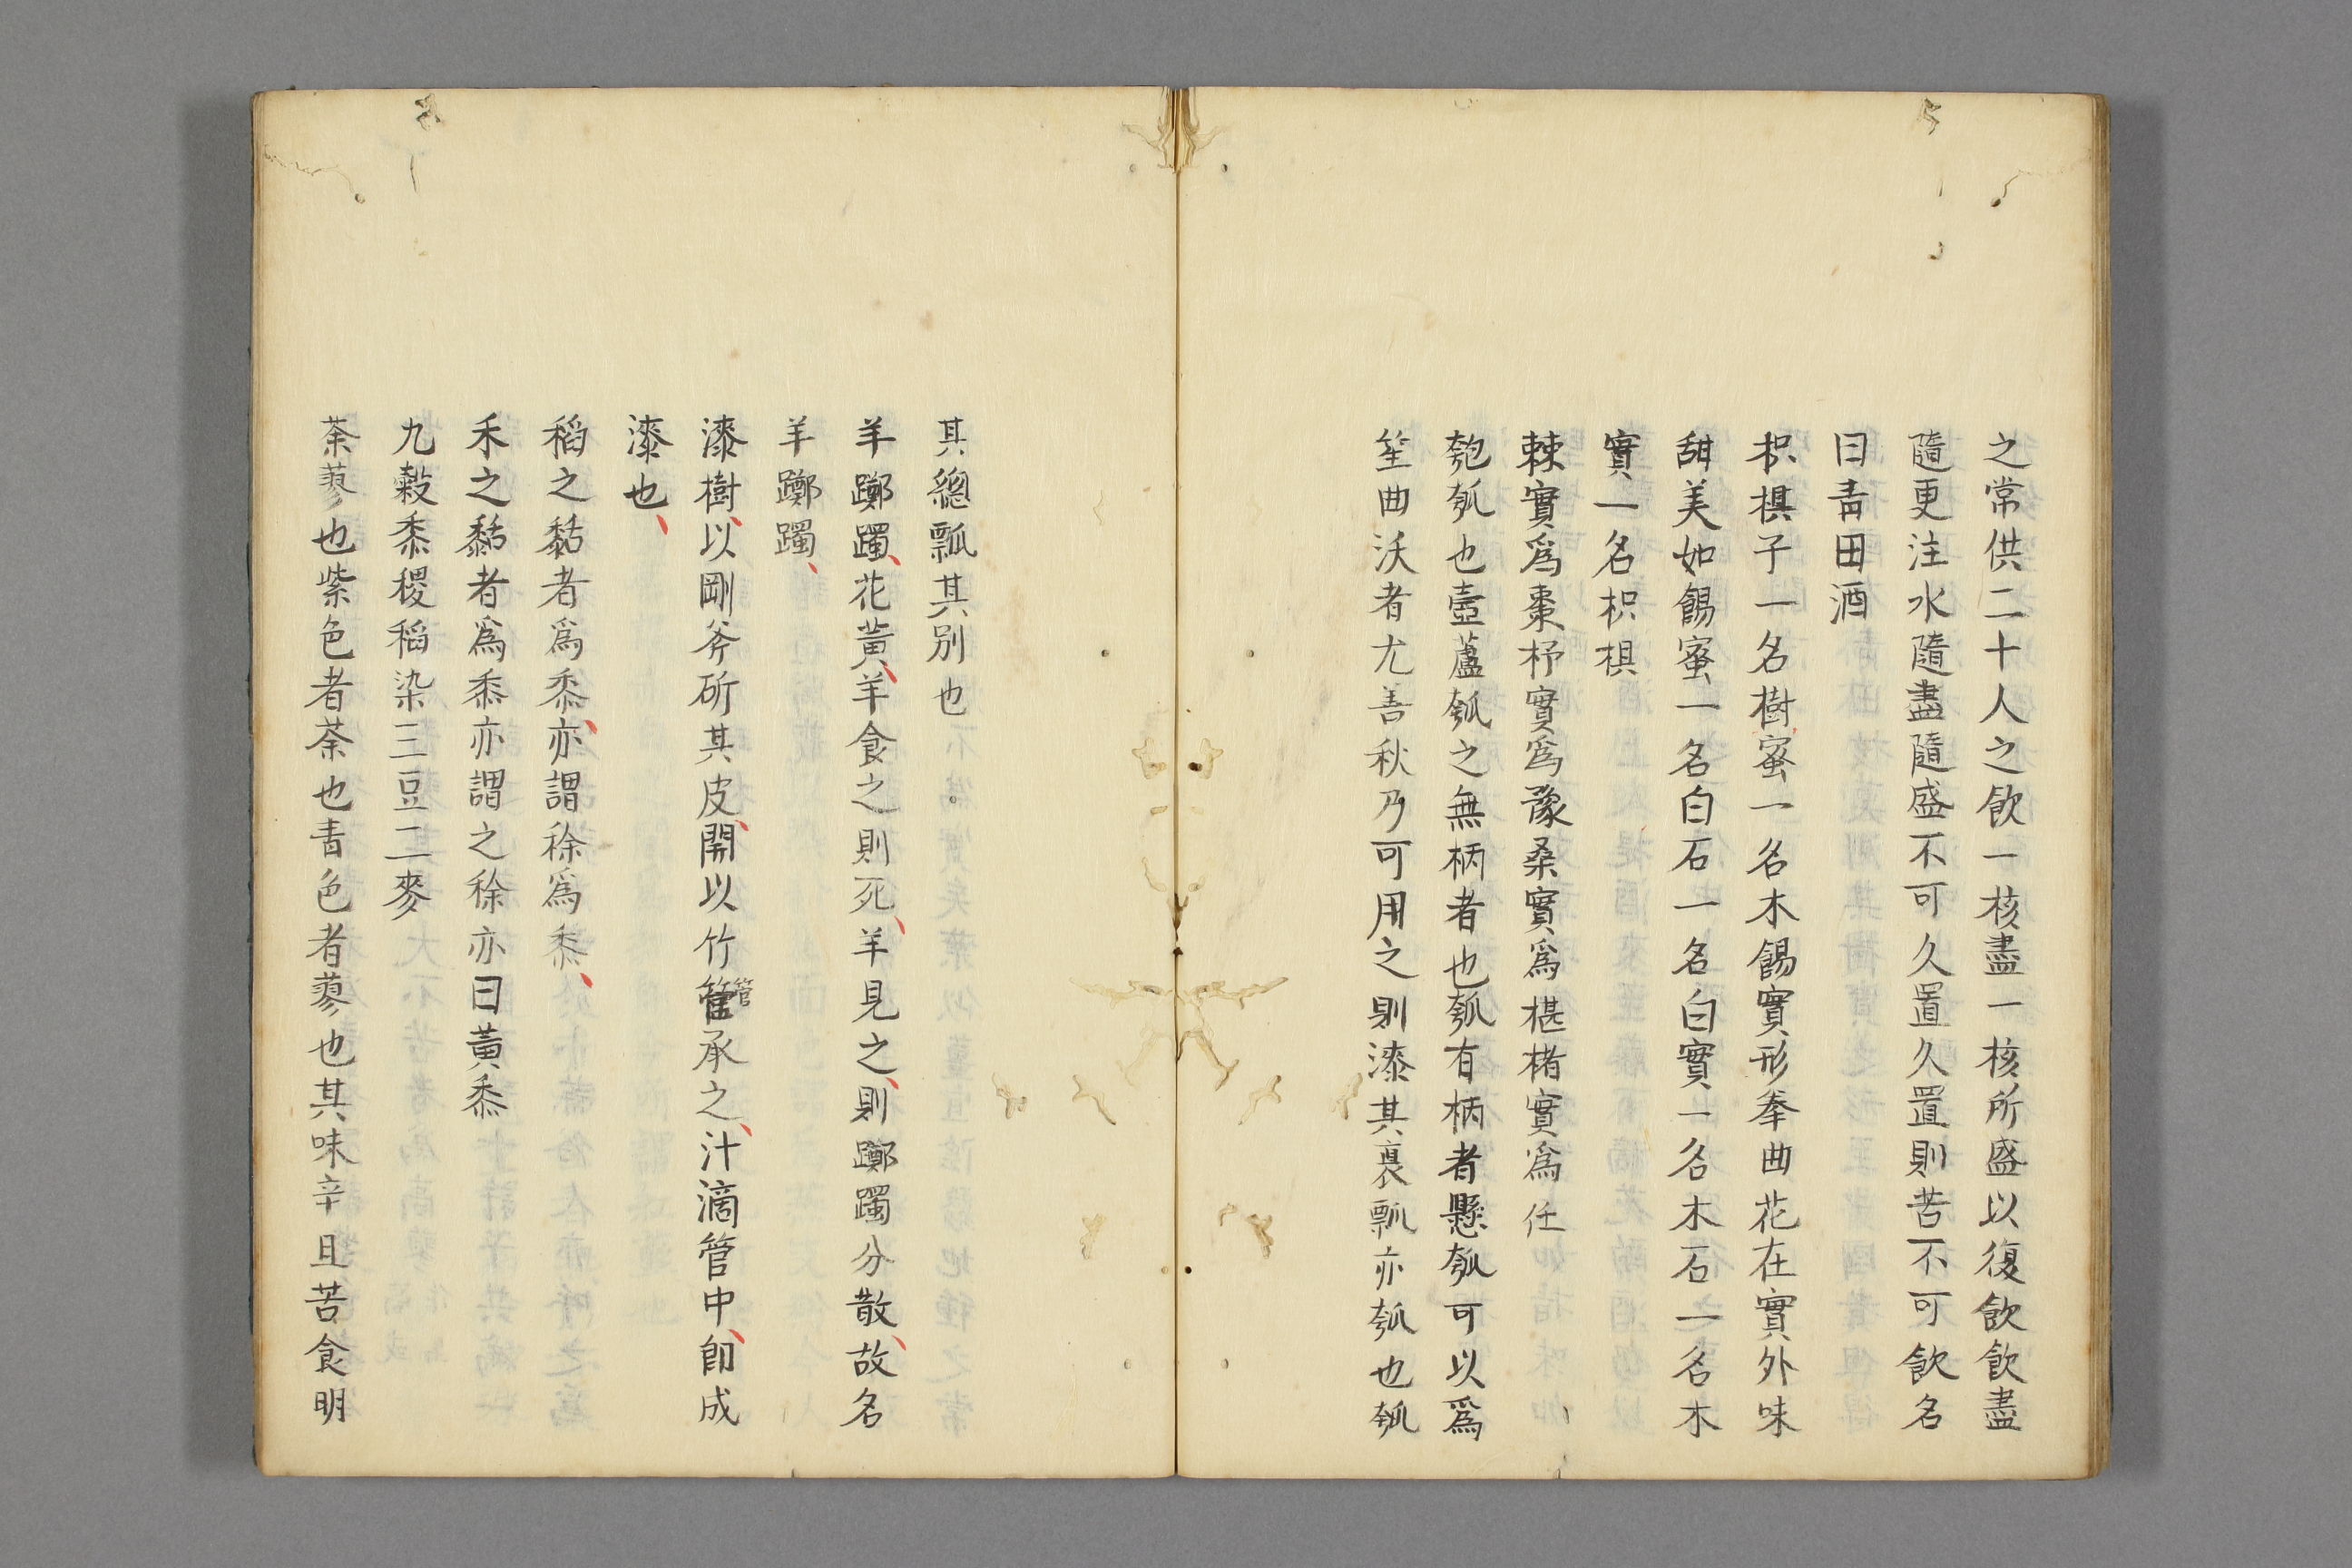 之常供二十人之飲一核盡一核所盛以復飲飲盡
隨更注水隨盡隨盛不可久置久置則苦不可飲名
曰青田酒
枳椇子一名樹蜜一名木餳實形拳曲花在實外味
甜美如餳蜜一名白石一名白實一名木石一名木
實一名枳椇
棘實爲棗杼實爲橡桑實爲椹楮實爲任
匏瓠也壺蘆瓠之無柄者也瓠有柄者懸瓠可以爲
笙曲沃者尤善秋乃可用之則漆其裏瓢亦瓠也瓠
其總瓢其別也
羊躑躅花黃羊食之則死羊見之則躑躅分散故名
羊躑躅
漆樹以剛斧斫其皮開以竹管承之汁滴管中卽成
管
漆也
稻之黏者爲黍亦謂稌爲黍
禾之黏者爲黍亦謂之稌亦曰黃黍
九穀黍稷稻染三豆二麥
荼蓼也紫色者荼也青色者蓼也其味辛且苦食明